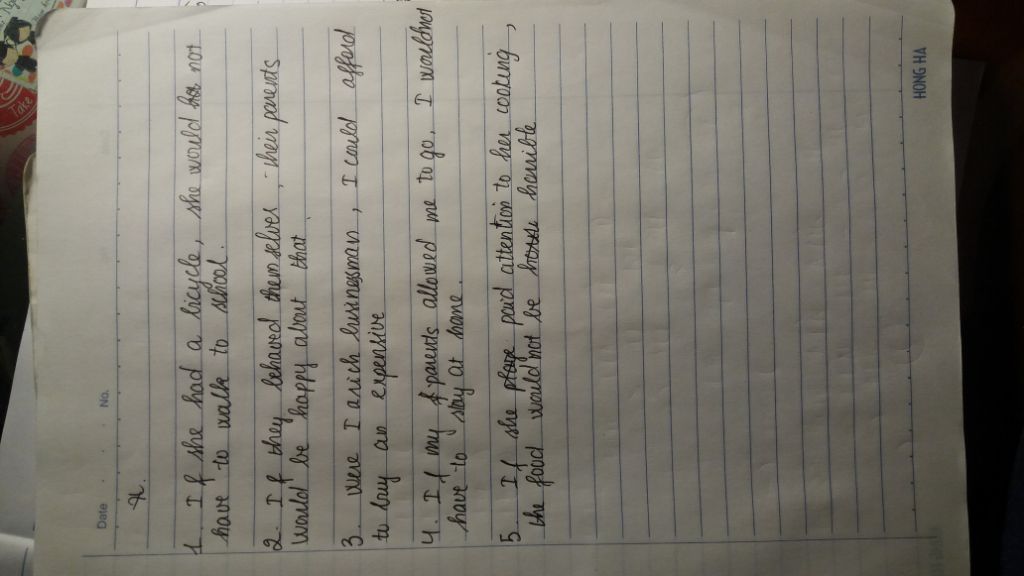 Date No.
1. If she had a bicycle, she would not
have to walk to school.
2. If they behaved themselves, their parents
would be happy about that.
3. Were I a rich businessman, I could afford
to buy an expensive
4. If my parents allowed me to go, I would not
have to stay at home.
5. If she paid attention to her cooking,
the food would not be horrible
HONG HA